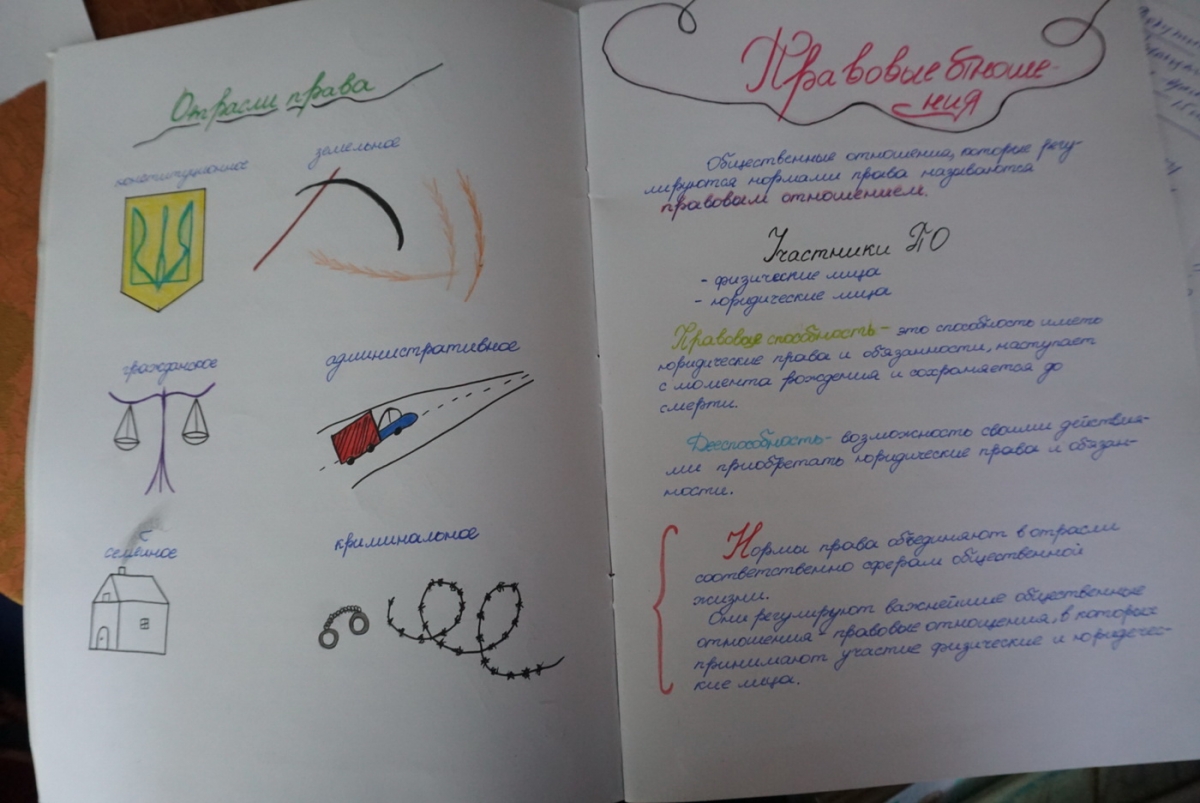 Отрасли права
конституционное
земельное
гражданское
административное
семейное
криминальное
Правовые отноше-
ния
Общественные отношения, которые регу-
лируются нормами права называются
правовым отношением.
Участники ПО
- физические лица
- юридические лица
Правовые способность - это способность иметь
юридические права и обязанности, наступает
с момента рождения и сохраняется до
смерти.
Дееспособность - возможность своими действия-
ми приобретать юридические права и обязан-
ности.
Нормы права объединяют в отрасли
соответственно сферам общественной
жизни.
Они регулируют важнейшие общественные
отношения - правовые отношения, в которых
принимают участие физические и юридичес-
кие лица.